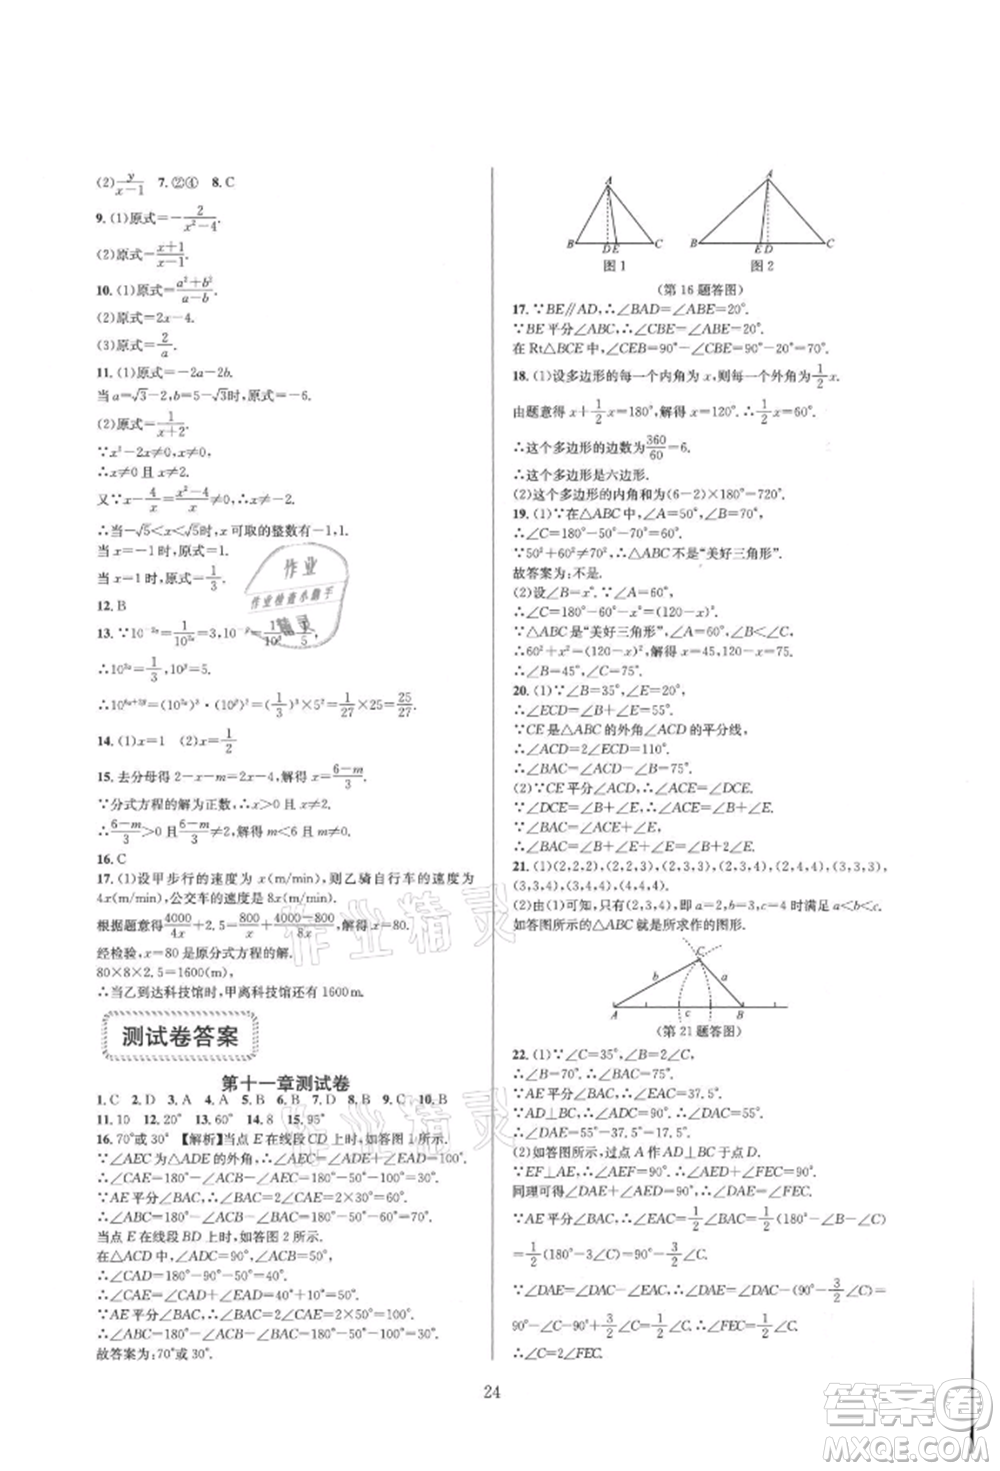 (2)y/(x−1)　7.②④　8.C
9.(1)原式=−2/(x²−4).
(2)原式=(x+1)/(x−1).
10.(1)原式=(a²+b²)/(a−b).
(2)原式=2x−4.
(3)原式=2/a.
11.(1)原式=−2a−2b.
当a=√3−2,b=5−√3时,原式=−6.
(2)原式=1/(x+2).
∵x²−2x≠0,
∴x≠0且x≠2.
又∵x−4/x=(x²−4)/x≠0,∴x≠±2.
∴当−√5<x<√5时,x可取的整数有−1,1.
当x=−1时,原式=1.
当x=1时,原式=1/3.
12.B
∴10³ᵃ=1/3,10ᵝ=5.
14.(1)x=1　(2)x=1/2
15.去分母得2−x−m=2x−4,解得x=(6−m)/3.
∵分式方程的解为正数,∴x>0且x≠2.
∴(6−m)/3>0且(6−m)/3≠2,解得m<6且m≠0.
16.C
17.(1)设甲步行的速度为x(m/min),则乙骑自行车的速度为
4x(m/min),公交车的速度是8x(m/min).
根据题意得4000/4x+2.5=800/x+(4000−800)/8x,解得x=80.
经检验,x=80是原分式方程的解.
80×8×2.5=1600(m).
∴当乙到达科技馆时,甲离科技馆还有1600m.
测试卷答案
第十一章测试卷
1.C　2.D　3.A　4.A　5.B　6.B　7.D　8.B　9.C　10.B
11.10　12.20°　13.60°　14.8　15.95°
16.70°或30°【解析】当点E在线段CD上时,如答图1所示.
∵∠AEC为△ADE的外角,∴∠AEC=∠ADC+∠DAE=100°.
∴∠CAE=180°−∠AEC−∠ACB=180°−100°−50°=30°.
∵AE平分∠BAC,∴∠BAC=2∠CAE=2×30°=60°.
∴∠ABC=180°−∠BAC−∠ACB=180°−60°−50°=70°.
当点E在线段BD上时,如答图2所示.
在△ADC中,∠ADC=90°,∠ACB=50°,
∴∠CAD=180°−90°−50°=40°.
∴∠CAE=∠CAD+∠DAE=40°+10°=50°.
∵AE平分∠BAC,∴∠BAC=2∠CAE=2×50°=100°.
∴∠ABC=180°−∠ACB−∠BAC=180°−50°−100°=30°.
故答案为:70°或30°.
A
B　D E　C
图1
A
B　E D　C
图2
(第16题答图)
17.∵BE∥AD,∴∠BAD=∠ABE=20°.
∵BE平分∠ABC,∴∠CBE=∠ABE=20°.
在Rt△BCE中,∠CEB=90°−∠CBE=90°−20°=70°.
18.(1)设多边形的每一个内角为x,则每一个外角为1/2x.
由题意得x+1/2x=180°,解得x=120°.∴1/2x=60°.
∴这个多边形的边数为360/60=6.
∴这个多边形是六边形.
(2)这个多边形的内角和为(6−2)×180°=720°.
19.(1)∵在△ABC中,∠A=50°,∠B=60°,
∴∠C=180°−50°−60°=70°.
∵50²+60²≠70²,∴△ABC不是“美好三角形”.
故答案为:不是.
(2)设∠B=x°.∵∠A=60°,
∴∠C=180°−60°−x°=120°−x°.
∵△ABC是“美好三角形”,∠A=60°,∠B<∠C,
∴60²+x²=(120−x)²,解得x=45,120−x=75.
∴∠B=45°,∠C=75°.
20.(1)∵∠B=35°,∠E=20°,
∴∠ECD=∠B+∠E=55°.
∵CE是△ABC的外角∠ACD的平分线,
∴∠ACD=2∠ECD=110°.
∴∠BAC=∠ACD−∠B=75°.
(2)∵CE平分∠ACD,∴∠ACE=∠DCE.
∵∠DCE=∠B+∠E,∴∠ACE=∠B+∠E.
∵∠BAC=∠ACE+∠E,
∴∠BAC=∠B+∠E+∠E=∠B+2∠E.
21.(1)(2,2,2),(2,2,3),(2,3,3),(2,3,4),(2,4,4),(3,3,3),
(3,3,4),(3,4,4),(4,4,4).
(2)由(1)可知,只有(2,3,4),即a=2,b=3,c=4时满足a<b<c.
如答图所示的△ABC就是所求作的图形.
C
b　a
A　c　B
(第21题答图)
22.(1)∵∠C=35°,∠B=2∠C,
∴∠B=70°.∴∠BAC=75°.
∵AE平分∠BAC,∴∠EAC=37.5°.
∵AD⊥BC,∴∠ADC=90°.
∴∠DAC=55°.∴∠DAE=55°−37.5°=17.5°.
(2)如答图所示,过点A作AD⊥BC于点D.
∵EF⊥AE,∴∠AEF=90°.∴∠AED+∠FEC=90°.
同理可得∠DAE+∠AED=90°,∴∠DAE=∠FEC.
∵AE平分∠BAC,∴∠EAC=1/2∠BAC=1/2(180°−∠B−∠C)
=1/2(180°−3∠C)=90°−3/2∠C.
∵∠DAE=∠DAC−∠EAC,∴∠DAE=∠DAC−(90°−3/2∠C)=
90°−∠C−90°+3/2∠C=1/2∠C.∴∠FEC=1/2∠C.
∴∠C=2∠FEC.
24
作业
作业检查小助手
精灵
作业精灵
作业精灵
答案圈
MXQE.COM